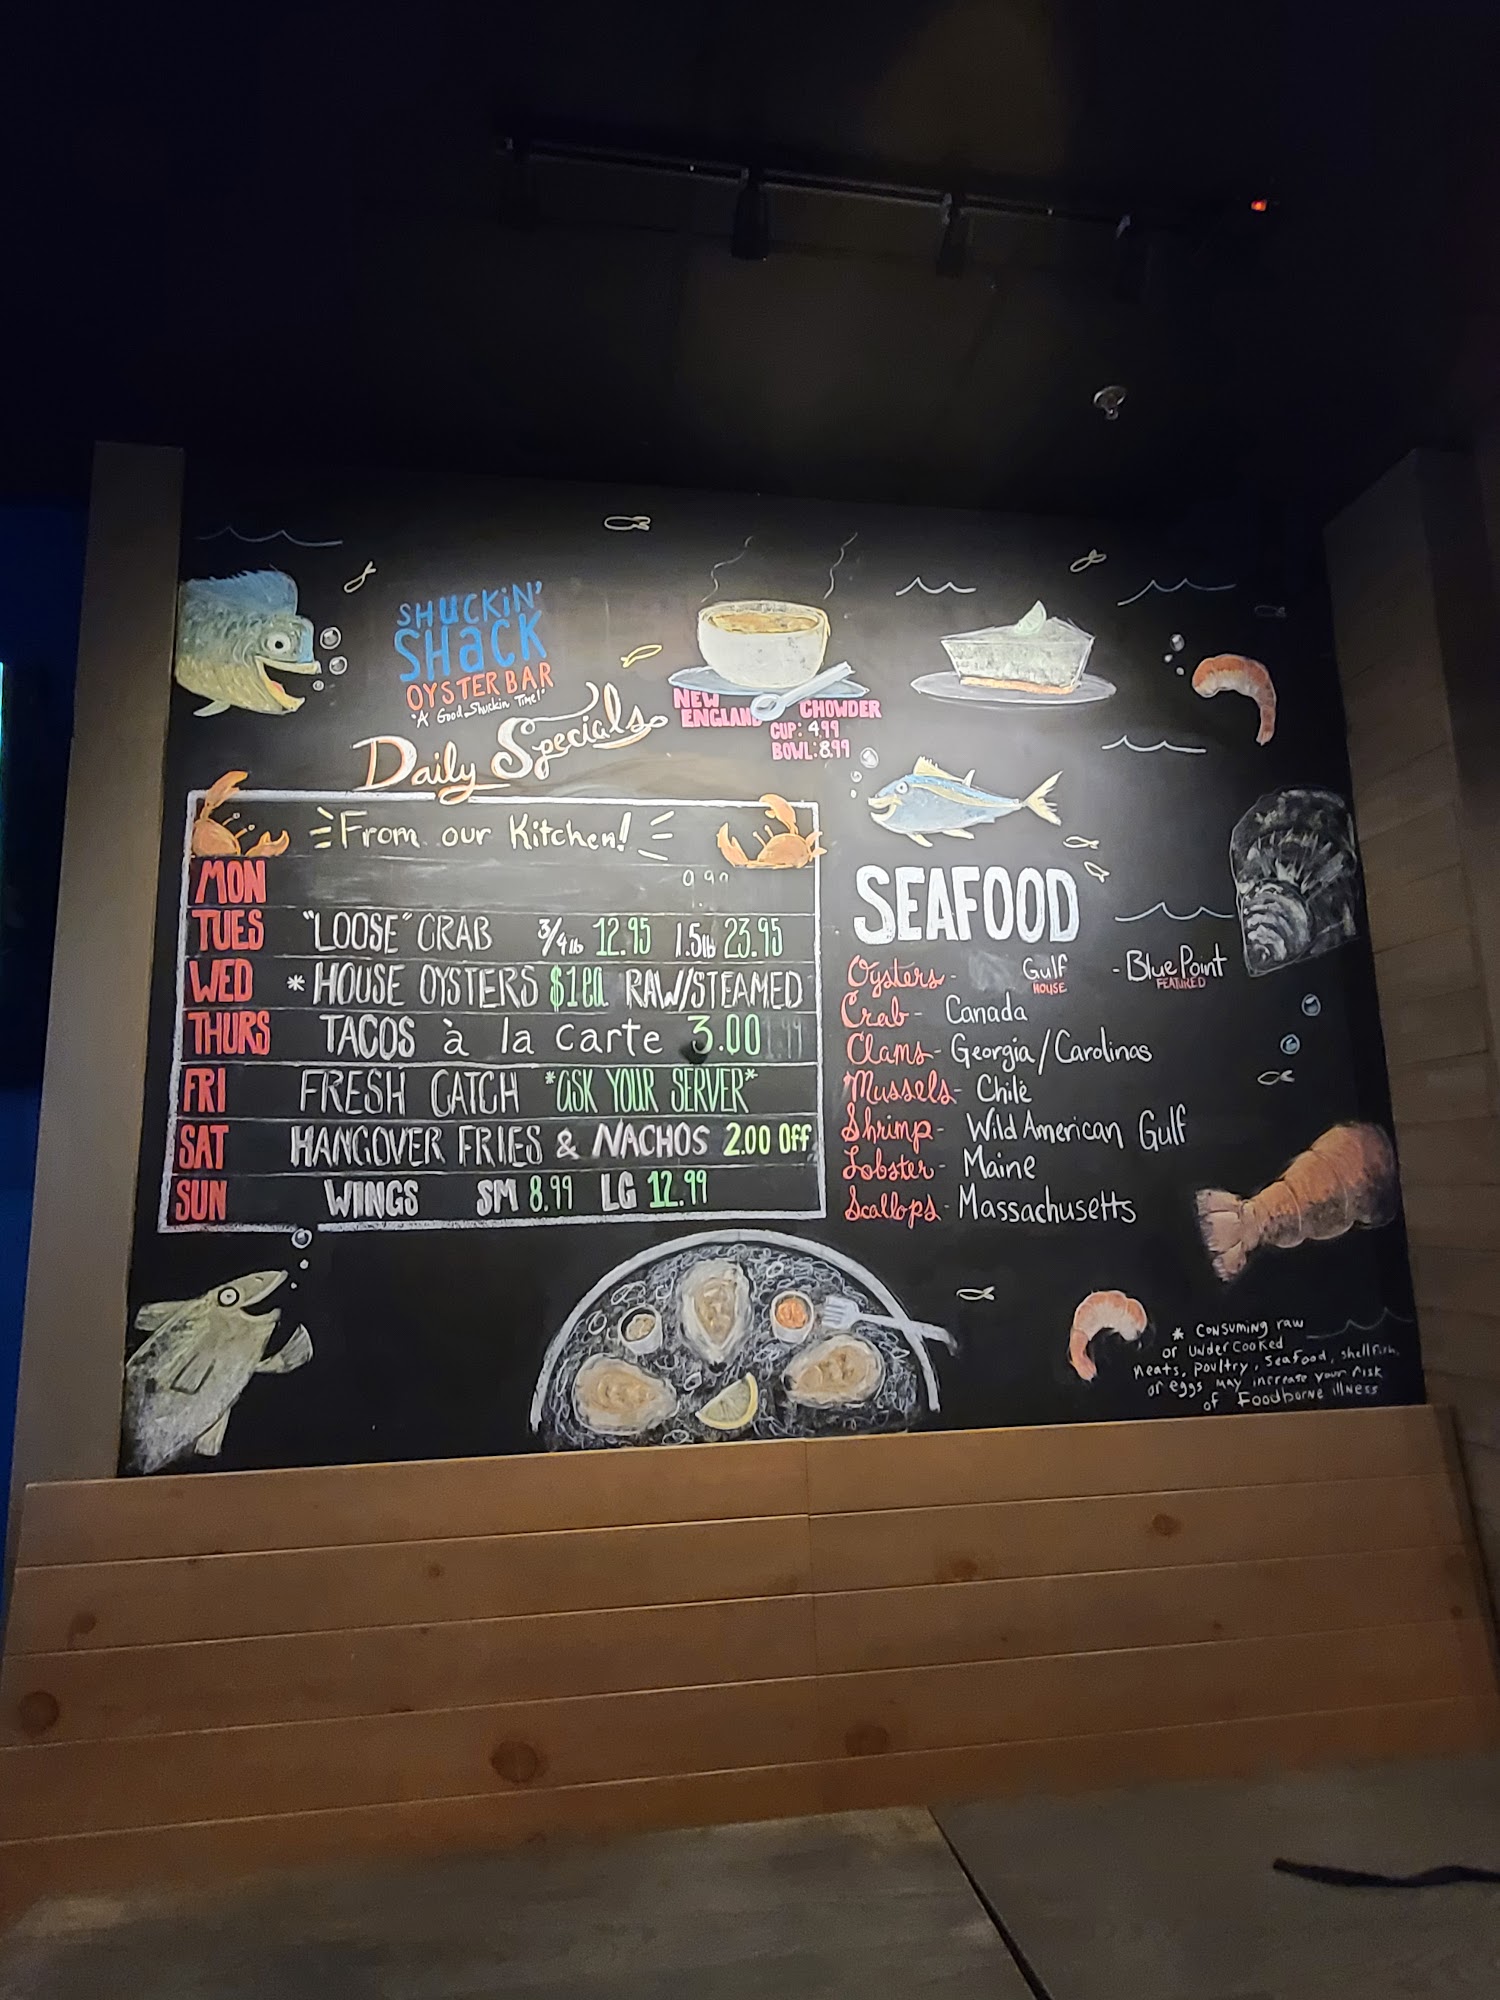 SHUCKIN'
SHACK
OYSTER BAR
"A Good Shuckin Time!"
Daily Specials
NEW ENGLAND CHOWDER
CUP: 4.99
BOWL: 8.99
From our Kitchen!
MON 9.99
TUES "LOOSE" CRAB 3/4 lb 12.95 1.5lb 23.95
WED * HOUSE OYSTERS $1ea RAW/STEAMED
THURS TACOS à la carte 3.00
FRI FRESH CATCH *ASK YOUR SERVER*
SAT HANGOVER FRIES & NACHOS 2.00 Off
SUN WINGS SM 8.99 LG 12.99
SEAFOOD
Oysters - Gulf - Blue Point
HOUSE FEATURED
Crab - Canada
Clams - Georgia/Carolinas
Mussels - Chile
Shrimp - Wild American Gulf
Lobster - Maine
Scallops - Massachusetts
* Consuming raw
or undercooked
meats, poultry, seafood, shellfish,
or eggs may increase your risk
of Foodborne illness